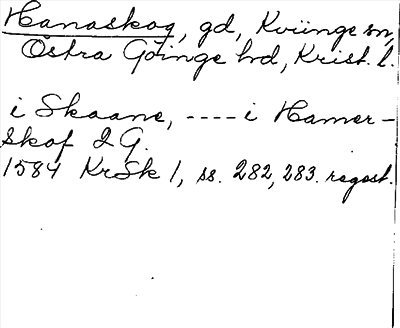 Hanaskog, gd, Kviinge sn,
Östra Göinge hrd, Krist. l.
i Skaane, ---- i Hamer-
Skof 2 G.
1584 KrSk 1, ss. 282, 283. regest.